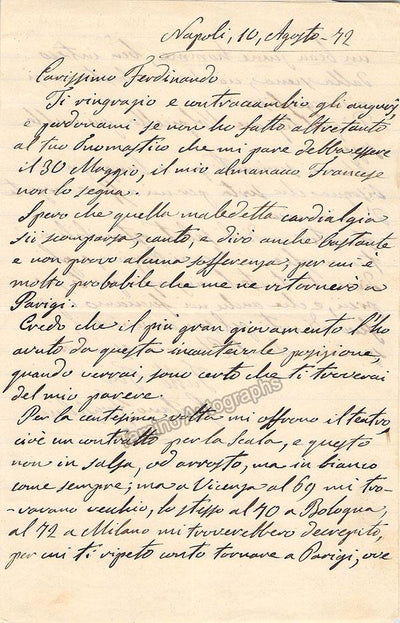 Napoli, 10, Agosto - 72
Carissimo Ferdinando
Ti ringrazio e contraccambio gli augurj
e perdonami se non ho fatto altrettanto
al tuo Onomastico che mi pare debba essere
il 30 Maggio, il mio almanacco Francese
non lo segna.
Spero che quella maledetta cardialgia
sii scomparsa, canto, e dirò anche bastante
e non provo alcuna sofferenza, per cui è
molto probabile che me ne ritornerò a
Parigi.
Credo che il più gran giovamento l'ho
avuto da questa incantevole posizione,
quando verrai, sono certo che ti troverai
del mio parere.
Per la centesima volta mi offrono il teatro
cioè un contratto per la Scala, e questo
non in salsa, od arrosto, ma in bianco
come sempre; ma a Vicenza al 60 mi tro-
-vavano vecchio, lo stesso al 70 a Bologna,
al 72 a Milano mi troverebbero decrepito,
per cui ti ripeto conto tornare a Parigi, ove
Tamino Autographs